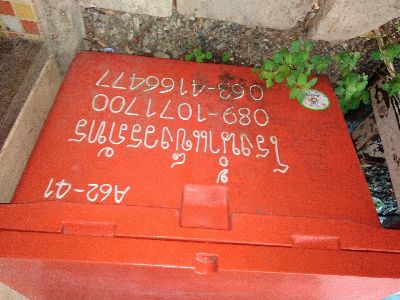 A62-41
โรงน้ำแข็งวรภัทร
089-1071700
063-4166477